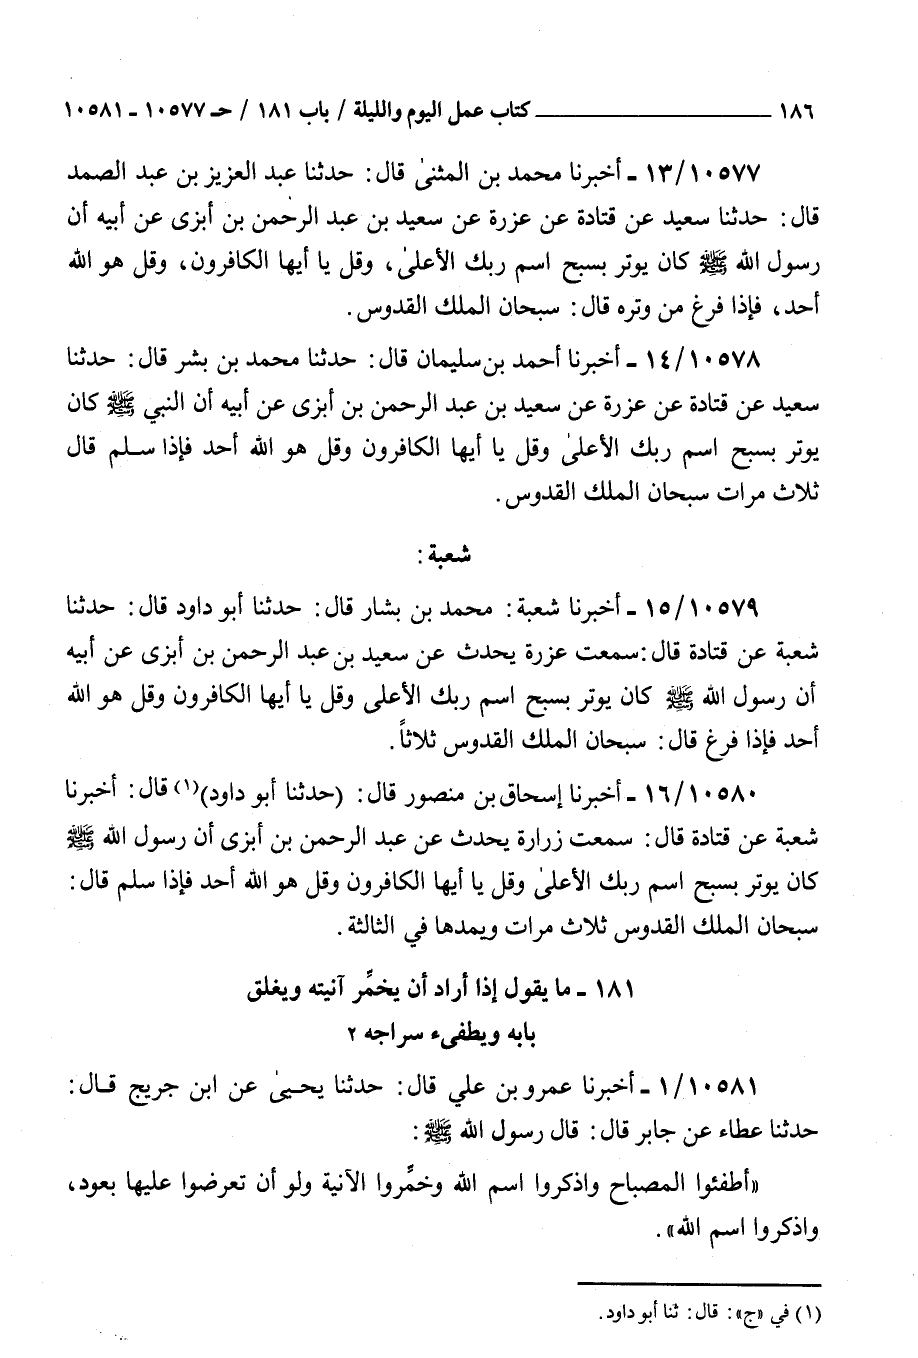 ١٨٦ ـــــــــــــ كتاب عمل اليوم والليلة / باب ١٨١ / حـ ١٠٥٧٧ ـ ١٠٥٨١
١٣/١٠٥٧٧ ـ أخبرنا محمد بن المثنىٰ قال: حدثنا عبد العزيز بن عبد الصمد
قال: حدثنا سعيد عن قتادة عن عزرة عن سعيد بن عبد الرحمن بن أبزى عن أبيه أن
رسول الله ﷺ كان يوتر بسبح اسم ربك الأعلىٰ، وقل يا أيها الكافرون، وقل هو الله
أحد، فإذا فرغ من وتره قال: سبحان الملك القدوس.
١٤/١٠٥٧٨ ـ أخبرنا أحمد بن سليمان قال: حدثنا محمد بن بشر قال: حدثنا
سعيد عن قتادة عن عزرة عن سعيد بن عبد الرحمن بن أبزى عن أبيه أن النبي ﷺ كان
يوتر بسبح اسم ربك الأعلىٰ وقل يا أيها الكافرون وقل هو الله أحد فإذا سلم قال
ثلاث مرات سبحان الملك القدوس.
شعبة:
١٥/١٠٥٧٩ ـ أخبرنا شعبة: محمد بن بشار قال: حدثنا أبو داود قال: حدثنا
شعبة عن قتادة قال: سمعت عزرة يحدث عن سعيد بن عبد الرحمن بن أبزى عن أبيه
أن رسول الله ﷺ كان يوتر بسبح اسم ربك الأعلى وقل يا أيها الكافرون وقل هو الله
أحد فإذا فرغ قال: سبحان الملك القدوس ثلاثاً.
١٦/١٠٥٨٠ ـ أخبرنا إسحاق بن منصور قال: (حدثنا أبو داود)(١) قال: أخبرنا
شعبة عن قتادة قال: سمعت زرارة يحدث عن عبد الرحمن بن أبزى أن رسول الله ﷺ
كان يوتر بسبح اسم ربك الأعلىٰ وقل يا أيها الكافرون وقل هو الله أحد فإذا سلم قال:
سبحان الملك القدوس ثلاث مرات ويمدها في الثالثة.
١٨١ ـ ما يقول إذا أراد أن يخمِّر آنيته ويغلق
بابه ويطفىء سراجه ٢
١/١٠٥٨١ ـ أخبرنا عمرو بن علي قال: حدثنا يحيىٰ عن ابن جريج قال:
حدثنا عطاء عن جابر قال: قال رسول الله ﷺ:
«أطفئوا المصباح واذكروا اسم الله وخمِّروا الآنية ولو أن تعرضوا عليها بعود،
واذكروا اسم الله».
(١) في «ج»: قال: ثنا أبو داود.